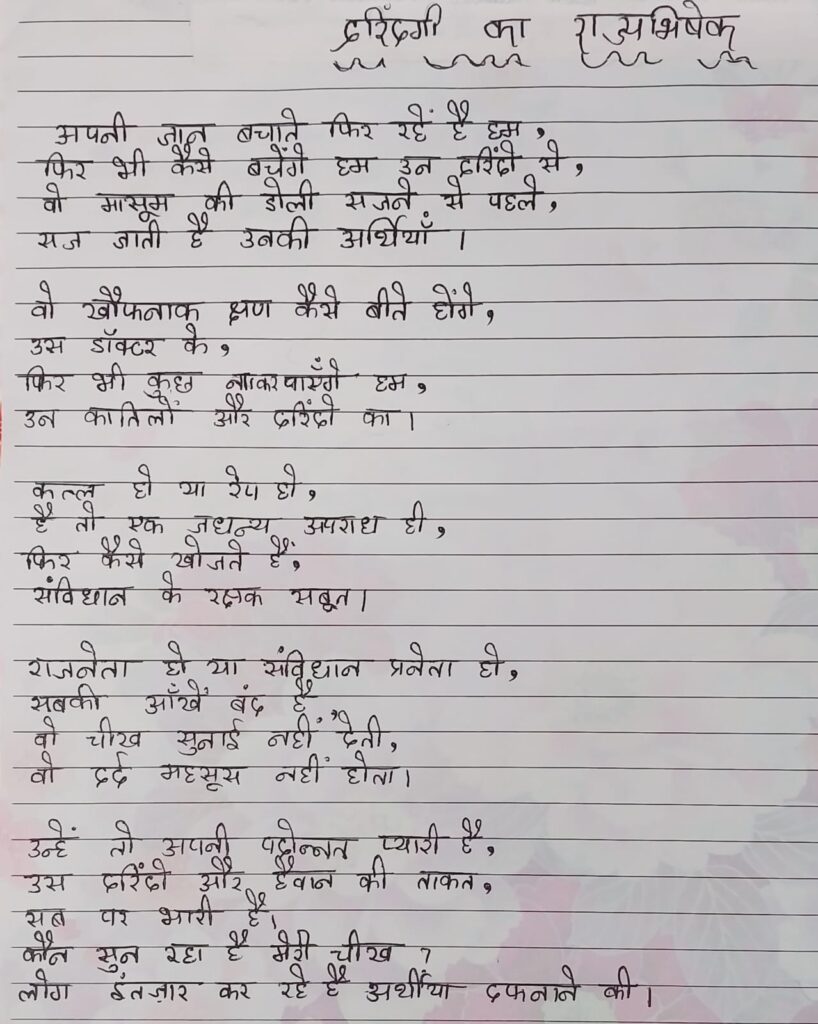 दरिंदगी का राज्यभिषेक
अपनी जान बचाते फिर रहें है हम,
फिर भी कैसे बचेंगे हम उन दरिंदो से,
वो मासूम की डोली सजने से पहले,
सज जाती है उनकी अर्थियाँ ।
वो खौफनाक क्षण कैसे बीते होंगे,
उस डॉक्टर के,
फिर भी कुछ ना कर पाएँगे हम,
उन कातिलों और दरिंदो का ।
कत्ल हो या रेप हो,
है तो एक जघन्य अपराध ही,
फिर कैसे खोजते हैं,
संविधान के रक्षक सबूत ।
राजनेता हो या संविधान प्रनेता हो,
सबकी आँखें बंद है,
वो चीख सुनाई नहीं देती,
वो दर्द महसूस नहीं होता ।
उन्हें तो अपनी पदोन्नत प्यारी है,
उस दरिंदो और हैवान की ताकत,
सब पर भारी है ।
कौन सुन रहा है मेरी चीख ?
लोग इंतज़ार कर रहे है अर्थीया दफनाने की ।